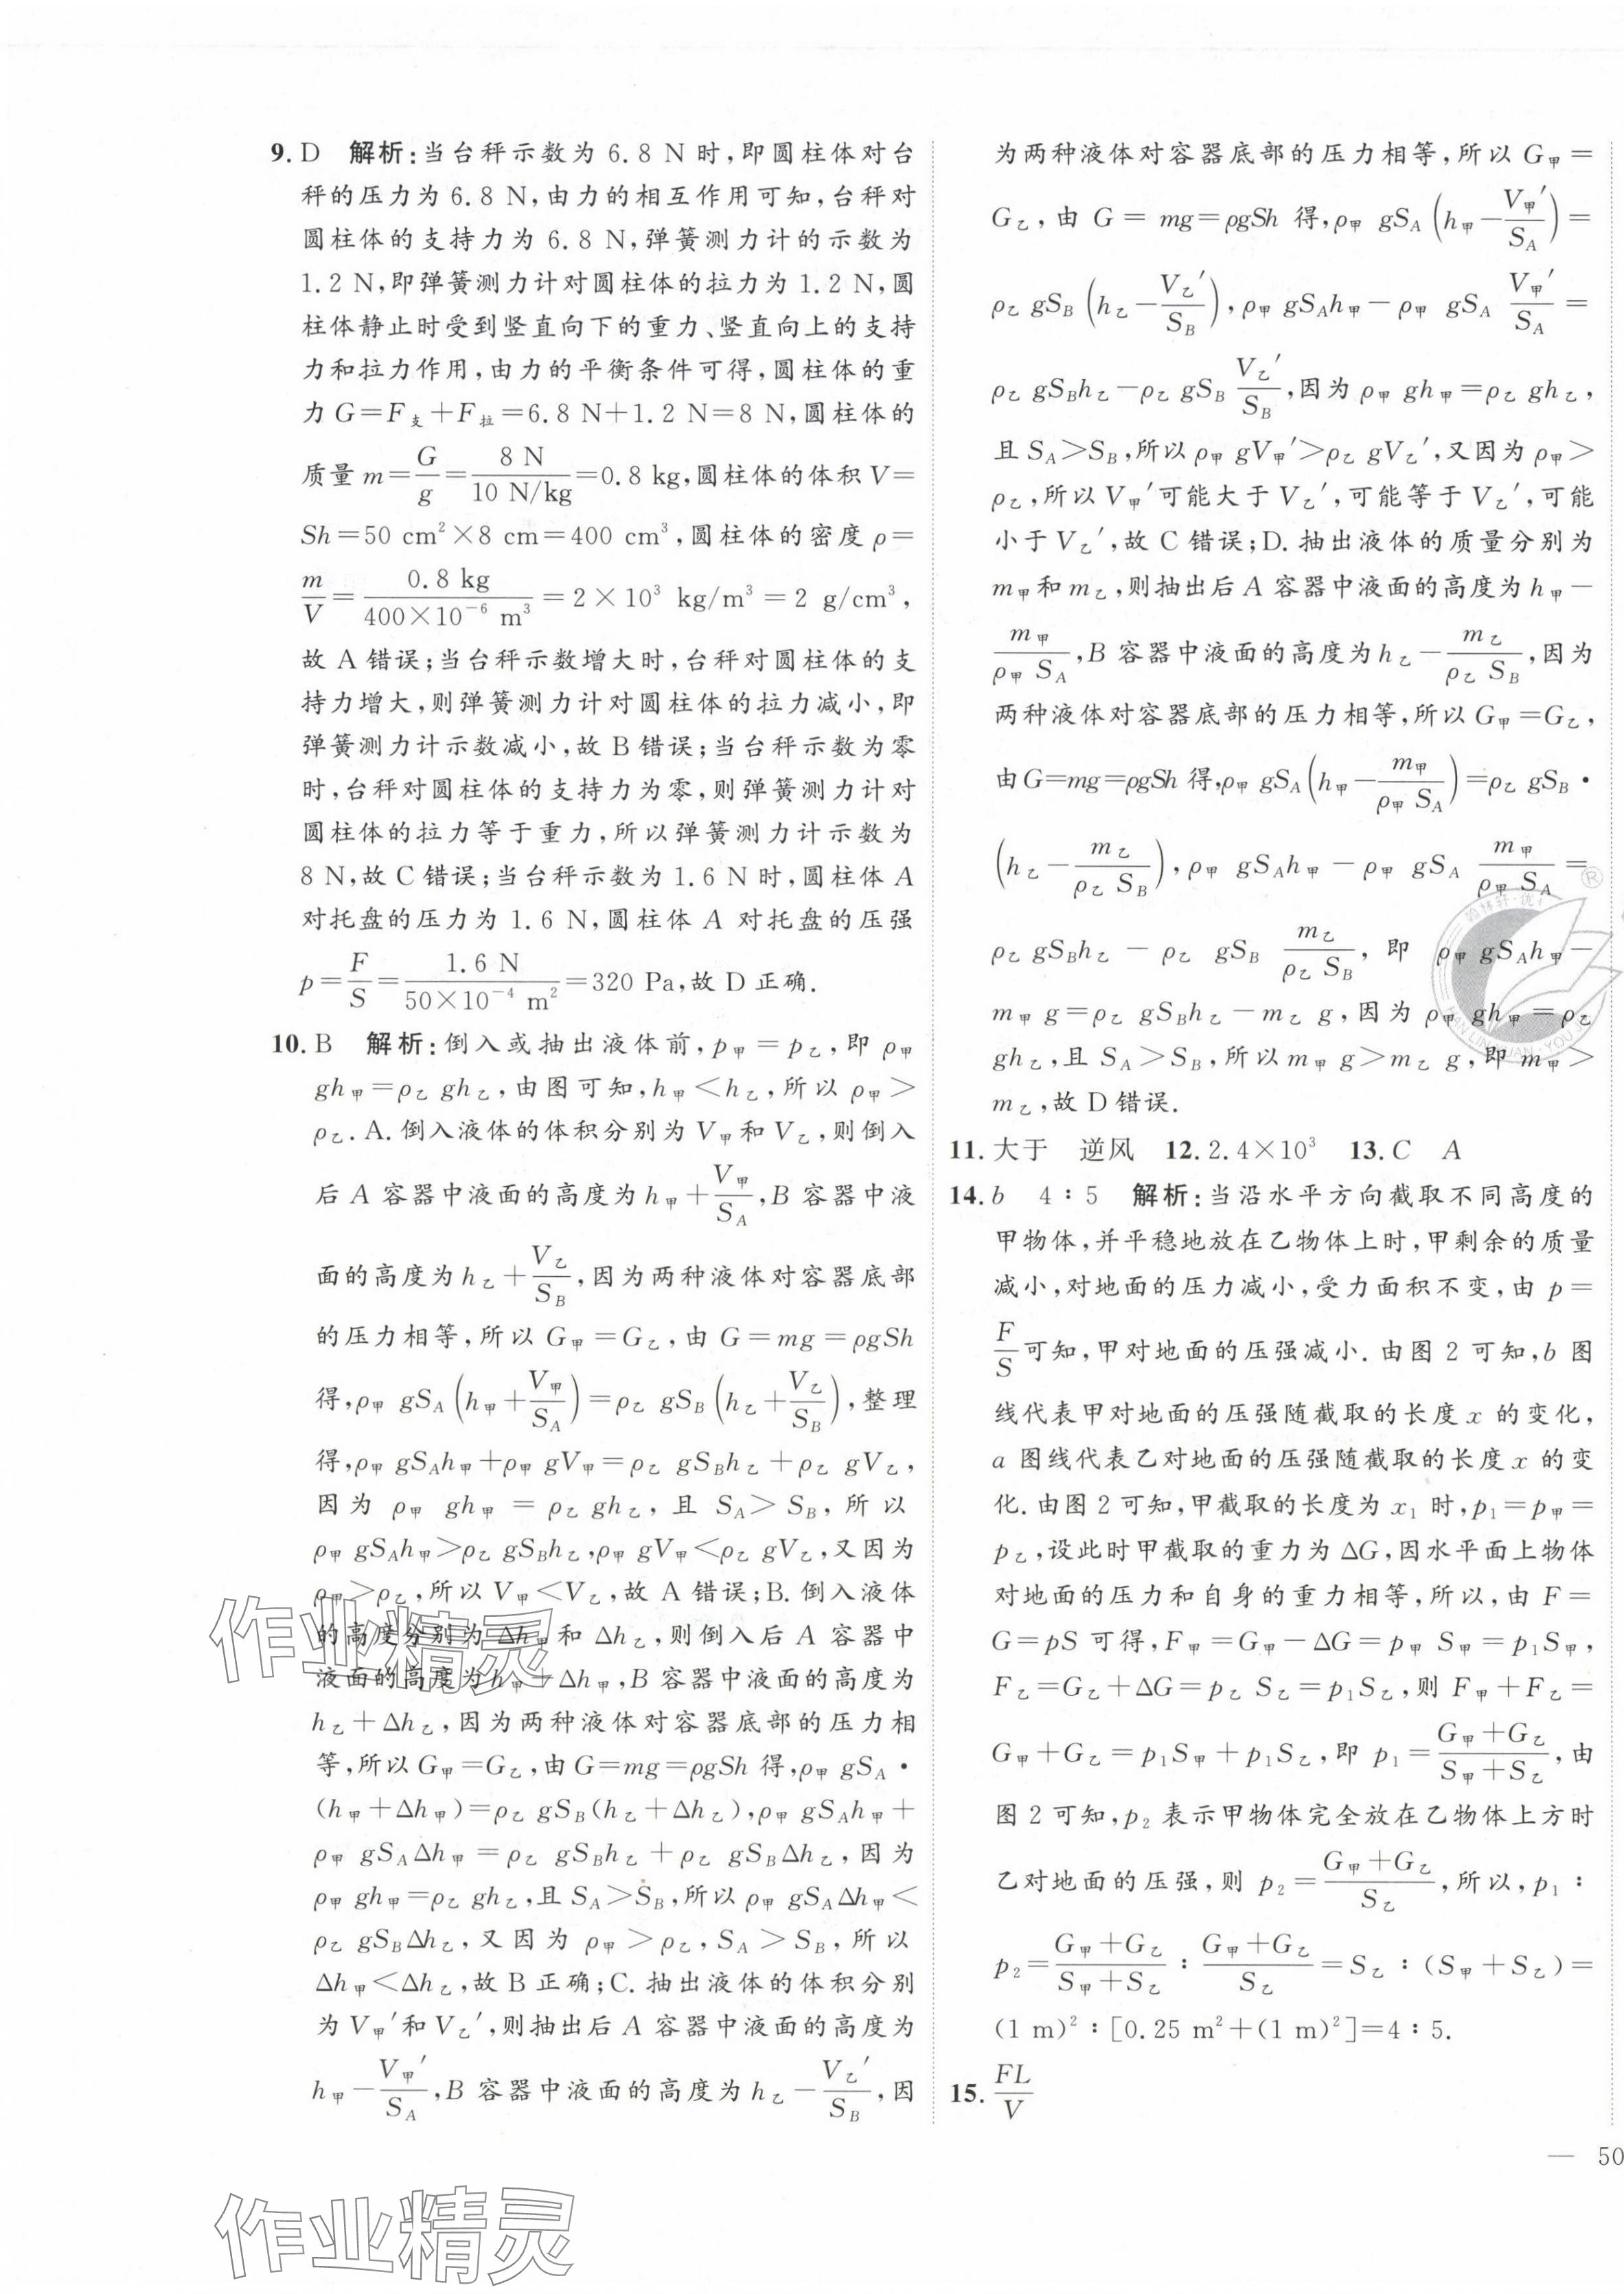 9. D 解析:当台秤示数为 6.8 N 时,即圆柱体对台
秤的压力为 6.8 N,由力的相互作用可知,台秤对
圆柱体的支持力为 6.8 N,弹簧测力计的示数为
1.2 N,即弹簧测力计对圆柱体的拉力为 1.2 N,圆
柱体静止时受到竖直向下的重力、竖直向上的支持
力和拉力作用,由力的平衡条件可得,圆柱体的重
力 G=F支+F拉=6.8 N+1.2 N=8 N,圆柱体的
质量 m=G/g=8 N/10 N/kg=0.8 kg,圆柱体的体积 V=
Sh=50 cm²×8 cm=400 cm³,圆柱体的密度 ρ=
m/V=0.8 kg/400×10⁻⁶ m³=2×10³ kg/m³=2 g/cm³,
故 A 错误;当台秤示数增大时,台秤对圆柱体的支
持力增大,则弹簧测力计对圆柱体的拉力减小,即
弹簧测力计示数减小,故 B 错误;当台秤示数为零
时,台秤对圆柱体的支持力为零,则弹簧测力计对
圆柱体的拉力等于重力,所以弹簧测力计示数为
8 N,故 C 错误;当台秤示数为 1.6 N 时,圆柱体 A
对托盘的压力为 1.6 N,圆柱体 A 对托盘的压强
p=F/S=1.6 N/50×10⁻⁴ m²=320 Pa,故 D 正确.
10. B 解析:倒入或抽出液体前,p甲=p乙,即 ρ甲
gh甲=ρ乙 gh乙,由图可知,h甲<h乙,所以 ρ甲>
ρ乙.A. 倒入液体的体积分别为 V甲和 V乙,则倒入
后 A 容器中液面的高度为 h甲+V甲/S_A,B 容器中液
面的高度为 h乙+V乙/S_B,因为两种液体对容器底部
的压力相等,所以 G甲=G乙,由 G=mg=ρgSh
得,ρ甲 gS_A(h甲+V甲/S_A)=ρ乙 gS_B(h乙+V乙/S_B),整理
得,ρ甲 gS_Ah甲+ρ甲 gV甲=ρ乙 gS_Bh乙+ρ乙 gV乙,
因为 ρ甲 gh甲=ρ乙 gh乙,且 S_A>S_B,所以
ρ甲 gS_Ah甲>ρ乙 gS_Bh乙,ρ甲 gV甲<ρ乙 gV乙,又因为
ρ甲>ρ乙,所以 V甲<V乙,故 A 错误;B. 倒入液体
的高度分别为 Δh甲和 Δh乙,则倒入后 A 容器中
液面的高度为 h甲+Δh甲,B 容器中液面的高度为
h乙+Δh乙,因为两种液体对容器底部的压力相
等,所以 G甲=G乙,由 G=mg=ρgSh 得,ρ甲 gS_A·
(h甲+Δh甲)=ρ乙 gS_B(h乙+Δh乙),ρ甲 gS_Ah甲+
ρ甲 gS_AΔh甲=ρ乙 gS_Bh乙+ρ乙 gS_BΔh乙,因为
ρ甲 gh甲=ρ乙 gh乙,且 S_A>S_B,所以 ρ甲 gS_AΔh甲<
ρ乙 gS_BΔh乙,又因为 ρ甲>ρ乙,S_A>S_B,所以
Δh甲<Δh乙,故 B 正确;C. 抽出液体的体积分别
为 V甲′和 V乙′,则抽出后 A 容器中液面的高度为
h甲-V甲′/S_A,B 容器中液面的高度为 h乙-V乙′/S_B,因
为两种液体对容器底部的压力相等,所以 G甲=
G乙,由 G=mg=ρgSh 得,ρ甲 gS_A(h甲-V甲′/S_A)=
ρ乙 gS_B(h乙-V乙′/S_B),ρ甲 gS_Ah甲-ρ甲 gS_A V甲′/S_A=
ρ乙 gS_Bh乙-ρ乙 gS_B V乙′/S_B,因为 ρ甲 gh甲=ρ乙 gh乙,
且 S_A>S_B,所以 ρ甲 gV甲′>ρ乙 gV乙′,又因为 ρ甲>
ρ乙,所以 V甲′可能大于 V乙′,可能等于 V乙′,可能
小于 V乙′,故 C 错误;D. 抽出液体的质量分别为
m甲和 m乙,则抽出后 A 容器中液面的高度为 h甲-
m甲/ρ甲 S_A,B 容器中液面的高度为 h乙-m乙/ρ乙 S_B,因为
两种液体对容器底部的压力相等,所以 G甲=G乙,
由 G=mg=ρgSh 得,ρ甲 gS_A(h甲-m甲/ρ甲 S_A)=ρ乙 gS_B·
(h乙-m乙/ρ乙 S_B),ρ甲 gS_Ah甲-ρ甲 gS_A m甲/ρ甲 S_A=
ρ乙 gS_Bh乙-ρ乙 gS_B m乙/ρ乙 S_B,即 ρ甲 gS_Ah甲-
m甲 g=ρ乙 gS_Bh乙-m乙 g,因为 ρ甲 gh甲=ρ乙
gh乙,且 S_A>S_B,所以 m甲 g>m乙 g,即 m甲>
m乙,故 D 错误.
11. 大于 逆风 12. 2.4×10³ 13. C A
14. b 4∶5 解析:当沿水平方向截取不同高度的
甲物体,并平稳地放在乙物体上时,甲剩余的质量
减小,对地面的压力减小,受力面积不变,由 p=
F/S可知,甲对地面的压强减小.由图 2 可知,b 图
线代表甲对地面的压强随截取的长度 x 的变化,
a 图线代表乙对地面的压强随截取的长度 x 的变
化.由图 2 可知,甲截取的长度为 x₁ 时,p₁=p甲=
p乙,设此时甲截取的重力为 ΔG,因水平面上物体
对地面的压力和自身的重力相等,所以,由 F=
G=pS 可得,F甲=G甲-ΔG=p甲 S甲=p₁S甲,
F乙=G乙+ΔG=p乙 S乙=p₁S乙,则 F甲+F乙=
G甲+G乙=p₁S甲+p₁S乙,即 p₁=G甲+G乙/S甲+S乙,由
图 2 可知,p₂ 表示甲物体完全放在乙物体上方时
乙对地面的压强,则 p₂=G甲+G乙/S乙,所以,p₁∶
p₂=G甲+G乙/S甲+S乙∶G甲+G乙/S乙=S乙∶(S甲+S乙)=
(1 m)²∶[0.25 m²+(1 m)²]=4∶5.
15. FL/V
— 50
作业精灵
作业精灵
®